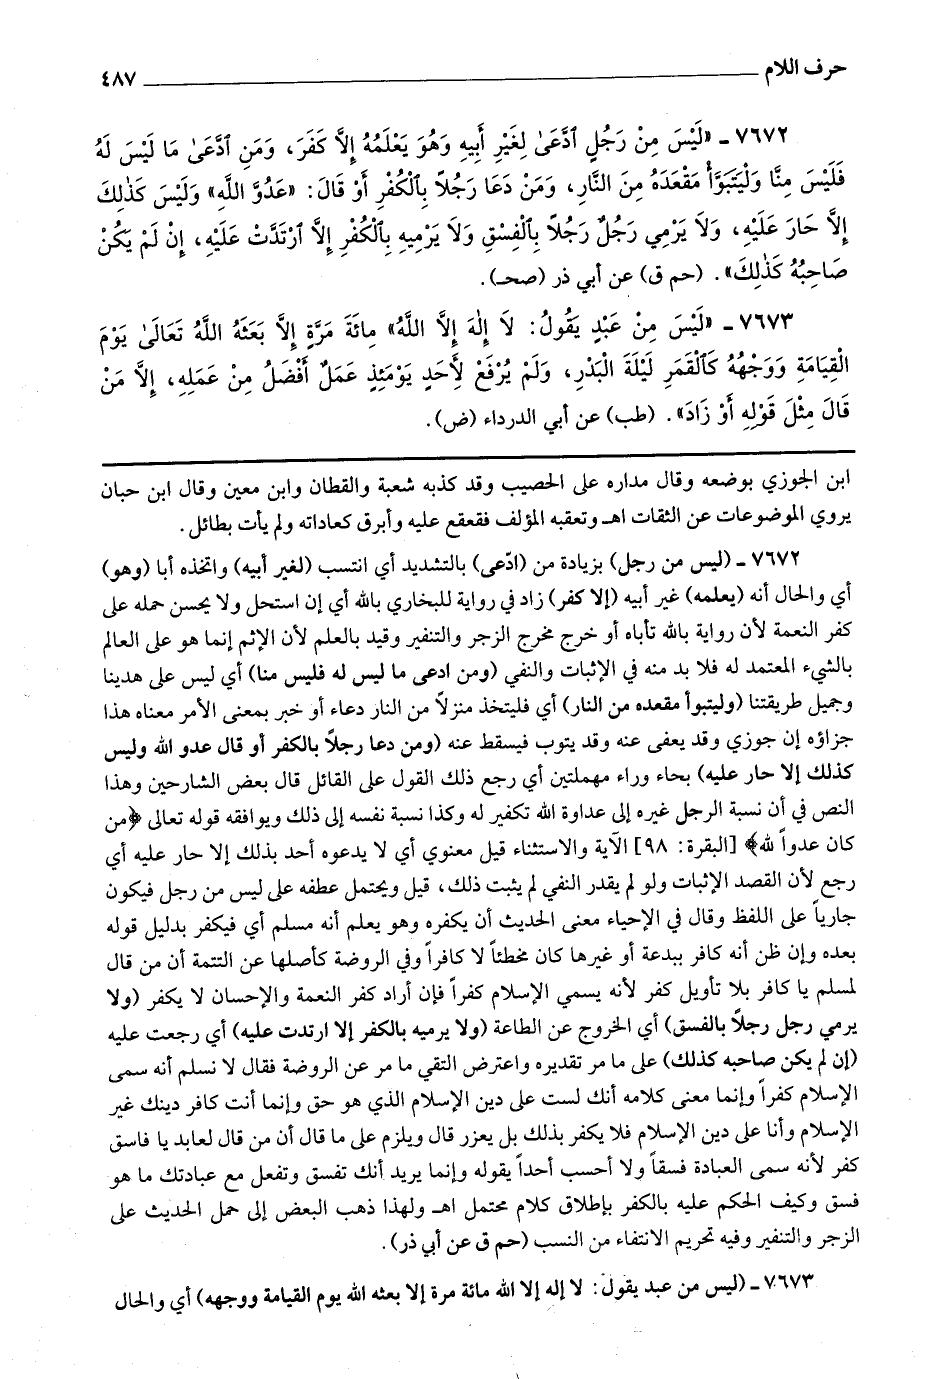 حرف اللام ٤٨٧
٧٦٧٢ - «لَيْسَ مِنْ رَجُلٍ ٱدَّعَىٰ لِغَيْرِ أَبِيهِ وَهُوَ يَعْلَمُهُ إِلاَّ كَفَرَ، وَمَنِ ٱدَّعَىٰ مَا لَيْسَ لَهُ
فَلَيْسَ مِنَّا وَلْيَتَبَوَّأْ مَقْعَدَهُ مِنَ النَّارِ، وَمَنْ دَعَا رَجُلاً بِالْكُفْرِ أَوْ قَالَ: «عَدُوَّ اللَّهِ» وَلَيْسَ كَذٰلِكَ
إِلاَّ حَارَ عَلَيْهِ، وَلاَ يَرْمِي رَجُلٌ رَجُلاً بِٱلْفِسْقِ وَلاَ يَرْمِيهِ بِٱلْكُفْرِ إِلاَّ ٱرْتَدَّتْ عَلَيْهِ، إِنْ لَمْ يَكُنْ
صَاحِبُهُ كَذٰلِكَ». (حم ق) عن أبي ذر (صحـ).
٧٦٧٣ - «لَيْسَ مِنْ عَبْدٍ يَقُولُ: لاَ إِلٰهَ إِلاَّ اللَّهُ» مِائَةَ مَرَّةٍ إِلاَّ بَعَثَهُ اللَّهُ تَعَالَىٰ يَوْمَ
الْقِيَامَةِ وَوَجْهُهُ كَٱلْقَمَرِ لَيْلَةَ الْبَدْرِ، وَلَمْ يُرْفَعْ لِأَحَدٍ يَوْمَئِذٍ عَمَلٌ أَفْضَلُ مِنْ عَمَلِهِ، إِلاَّ مَنْ
قَالَ مِثْلَ قَوْلِهِ أَوْ زَادَ». (طب) عن أبي الدرداء (ض).
ابن الجوزي بوضعه وقال مداره على الحصيب وقد كذبه شعبة والقطان وابن معين وقال ابن حبان
يروي الموضوعات عن الثقات اهـ وتعقبه المؤلف فقعقع عليه وأبرق كعاداته ولم يأت بطائل.
٧٦٧٢ - (ليس من رجل) بزيادة من (ادّعى) بالتشديد أي انتسب (لغير أبيه) واتخذه أبا (وهو)
أي والحال أنه (يعلمه) غير أبيه (إلا كفر) زاد في رواية للبخاري بالله أي إن استحل ولا يحسن حمله على
كفر النعمة لأن رواية بالله تأباه أو خرج مخرج الزجر والتنفير وقيد بالعلم لأن الإثم إنما هو على العالم
بالشيء المعتمد له فلا بد منه في الإثبات والنفي (ومن ادعى ما ليس له فليس منا) أي ليس على هدينا
وجميل طريقتنا (وليتبوأ مقعده من النار) أي فليتخذ منزلاً من النار دعاء أو خبر بمعنى الأمر معناه هذا
جزاؤه إن جوزي وقد يعفى عنه وقد يتوب فيسقط عنه (ومن دعا رجلاً بالكفر أو قال عدو الله وليس
كذلك إلا حار عليه) بحاء وراء مهملتين أي رجع ذلك القول على القائل قال بعض الشارحين وهذا
النص في أن نسبة الرجل غيره إلى عداوة الله تكفير له وكذا نسبة نفسه إلى ذلك ويوافقه قوله تعالى ﴿من
كان عدواً لله﴾ [البقرة: ٩٨] الآية والاستثناء قيل معنوي أي لا يدعوه أحد بذلك إلا حار عليه أي
رجع لأن القصد الإثبات ولو لم يقدر النفي لم يثبت ذلك، قيل ويحتمل عطفه على ليس من رجل فيكون
جارياً على اللفظ وقال في الإحياء معنى الحديث أن يكفره وهو يعلم أنه مسلم أي فيكفر بدليل قوله
بعده وإن ظن أنه كافر ببدعة أو غيرها كان مخطئاً لا كافراً وفي الروضة كأصلها عن التتمة أن من قال
لمسلم يا كافر بلا تأويل كفر لأنه يسمي الإسلام كفراً فإن أراد كفر النعمة والإحسان لا يكفر (ولا
يرمي رجل رجلاً بالفسق) أي الخروج عن الطاعة (ولا يرميه بالكفر إلا ارتدت عليه) أي رجعت عليه
(إن لم يكن صاحبه كذلك) على ما مر تقديره واعترض التقي ما مر عن الروضة فقال لا نسلم أنه سمى
الإسلام كفراً وإنما معنى كلامه أنك لست على دين الإسلام الذي هو حق وإنما أنت كافر دينك غير
الإسلام وأنا على دين الإسلام فلا يكفر بذلك بل يعزر قال ويلزم على ما قال أن من قال لعابد يا فاسق
كفر لأنه سمى العبادة فسقاً ولا أحسب أحداً يقوله وإنما يريد أنك تفسق وتفعل مع عبادتك ما هو
فسق وكيف الحكم عليه بالكفر بإطلاق كلام محتمل اهـ ولهذا ذهب البعض إلى حمل الحديث على
الزجر والتنفير وفيه تحريم الانتفاء من النسب (حم ق عن أبي ذر).
٧٦٧٣ - (ليس من عبد يقول: لا إله إلا الله مائة مرة إلا بعثه الله يوم القيامة ووجهه) أي والحال